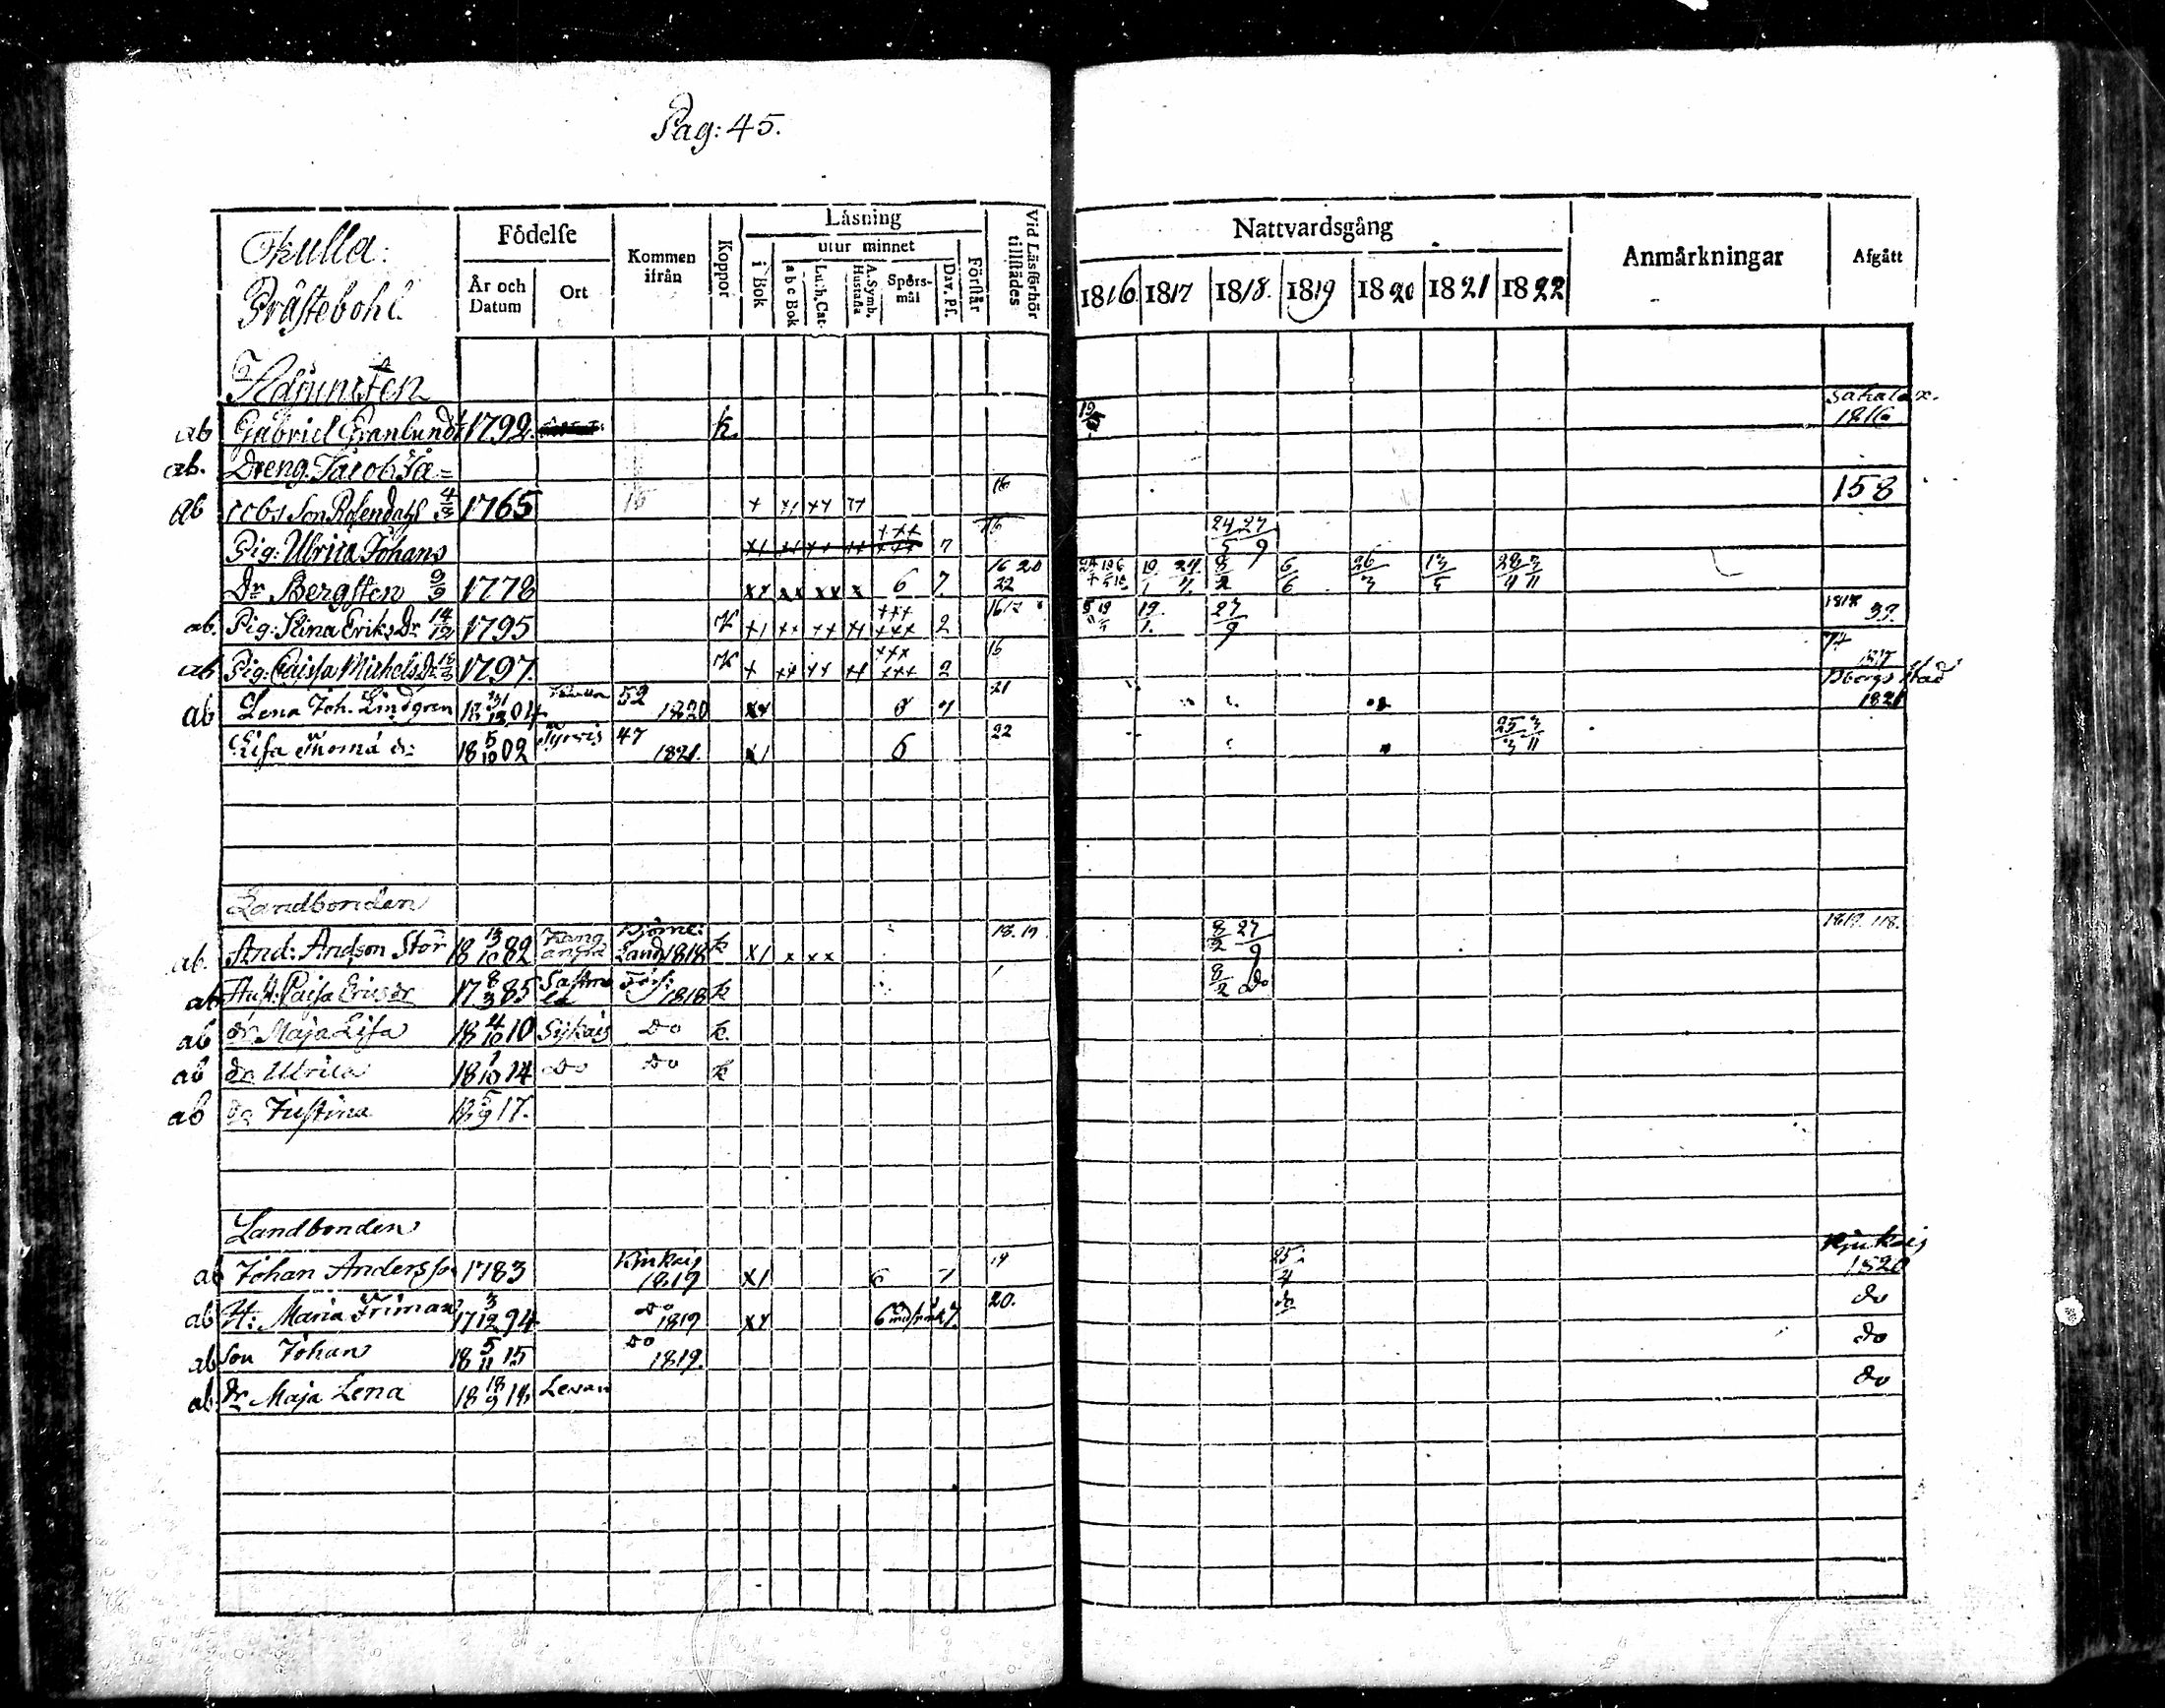 Pag: 45.
Skulla:
Prästebohl.
Födelse
År och Datum
Ort
Kommen ifrån
Koppor
Läsning
utur minnet
i Bok
a b c Bok
Luth. Cat.
A. Symb. Hustafla
Spörsmål
Dav. Ps.
Förstår
Vid Läsförhör tillstädes
Nattvardsgång
1816 1817 1818. 1819 1820 1821 1822
Anmärkningar
Afgått
Adjuncten
Sahalax.
ab Gabriel Granlund 1792. k 1816
ab. Dreng. Jacob Ja=
ab cobs Son Rosendahl 4/3 1765 15 + ++ ++ 16 158
Pig: Ulrica Johans 7 16 24/5 27/9
Dr Bergsten 9/9 1778 xx xx xx x 6 7. 16 20 22 19/1 8/2 6/6 26/3 13/5 28/4 3/11
ab. Pig: Stina Eriks Dr 14/12 1795 K 2 19/1. 27/9 1818 33.
ab Pig: Caisa Michels Dr 1797. K + ++ ++ ++ 2 16 74 1817
ab Lena Joh. Lindgren 18 31/12 04 52 1820 xx 21 Bborgs stad 1821
Lisa Thoma dr 18 5/10 02 Tyrvis 47 1821. 6 22 25/3 3/11
Landbonden
ab. And: Andson Stör Björne: land 1818 k x1 x x x 18. 19 8/2 27/9 1819. 118.
ab Hust: Caisa Ericsdr 17 8/3 85 1818 k 8/2 do
ab dr Maja Lisa 18 4/10 10 Sykais do k.
ab dr Ulrica 18 1/10 14 do do k
ab dr Justina 18 5/9 17.
Landbonden
ab Johan Andersson 1783 Kjukais 1819 x1 6 7 19 25/4 Kjukais 1820
ab H: Maria Friman 17 3/12 94 do 1819 xx 6 7. 20. do do
ab Son Johan 18 5/11 15 do 1819. do
ab. dr Maja Lena 18 18/9 18 Levan do